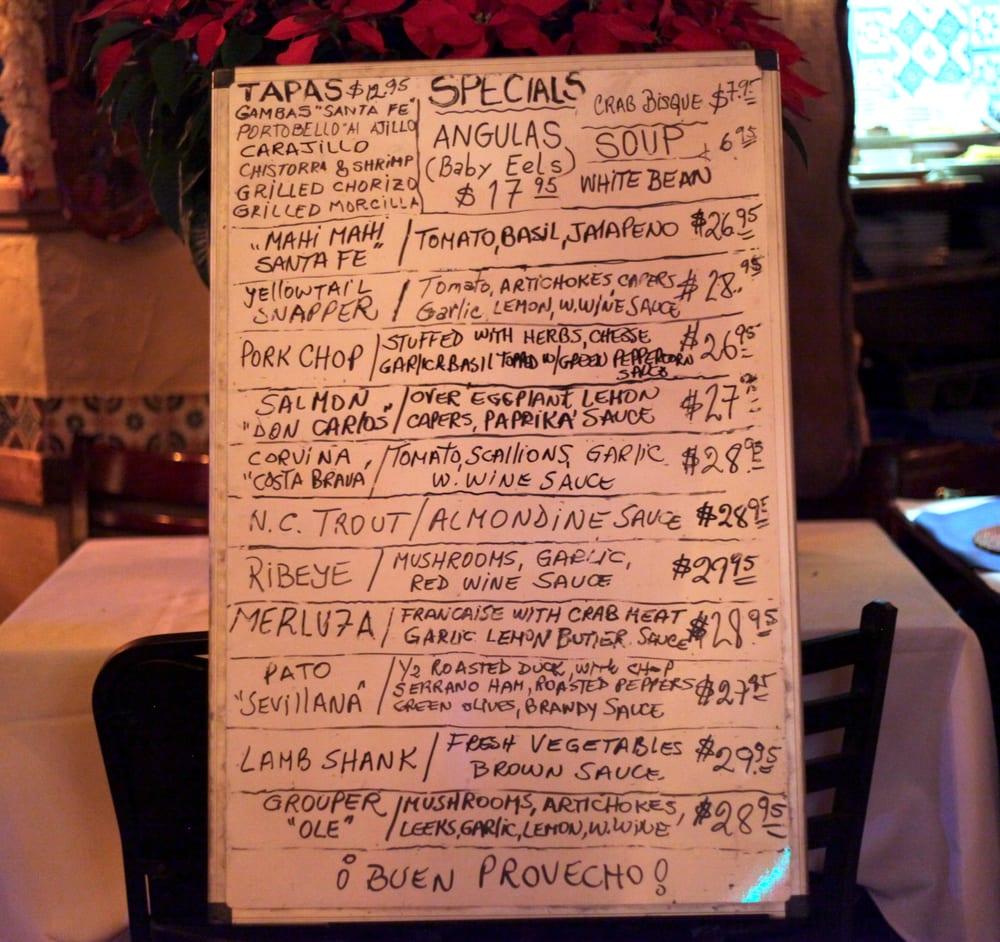 TAPAS $12.95
GAMBAS "SANTA FE"
PORTOBELLO "Al AJILLO
CARAJILLO
CHISTORRA & SHRIMP
GRILLED CHORIZO
GRILLED MORCILLA
SPECIALS
ANGULAS
(Baby Eels)
$17.95
CRAB BISQUE $7.95
SOUP 6.95
WHITE BEAN
"MAHI MAHI / TOMATO, BASIL, JAlAPENO $26.95
SANTA FE"
YEllOWTAIL / Tomato, ARTICHOKES, CAPERS $28.95
SNAPPER Garlic LEMON, W.WINE SAUCE
PORK CHOP / STUFFED WITH HERBS, CHEESE $26.95
GARlIC & BASIL TOPPED W/ GREEN PEPPERCORN
SAUCE
SALMON / OVER EGGPlANT LEMON $27
"DON CARlOS" CAPERS, PAPRIKA SAUCE
CORVINA / TOMATO, SCAllIONS, GARlIC $28.95
"COSTA BRAVA" W. WINE SAUCE
N.C. TROUT / ALMONDINE SAUCE $28.95
RIBEYE / MUSHROOMS, GARLIC, $29.95
RED WINE SAUCE
MERLUZA / FRANCAISE WITH CRAB MEAT $28.95
GARLIC LEMON BUTTER SAUCE
PATO / 1/2 ROASTED DUCK, WITH CHOP $27.95
"SEVIllANA" SERRANO HAM, ROASTED PEPPERS
GREEN OLIVES, BRANDY SAUCE
LAMB SHANK / FRESH VEGETABLES $29.95
BROWN SAUCE
GROUPER / MUSHROOMS, ARTICHOKES, $28.95
"OLE" LEEKS, GARlIC, LEMON, W.WINE
¡ BUEN PROVECHO !